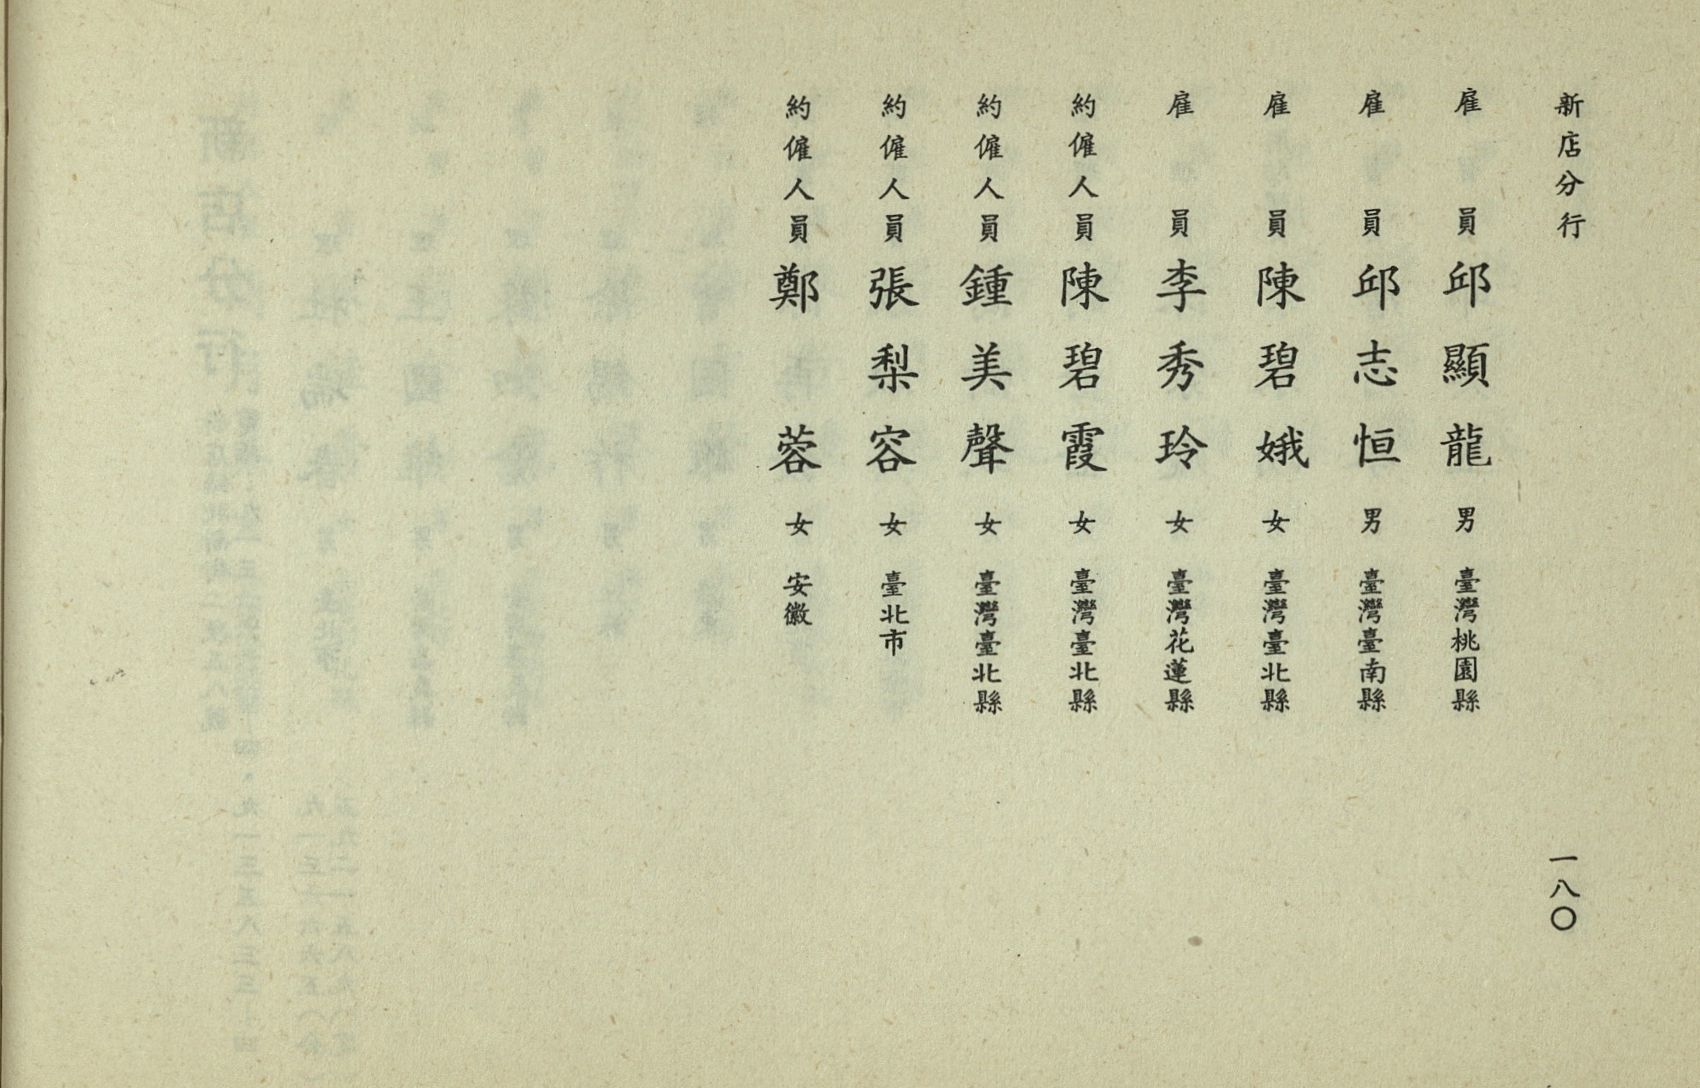 新店分行
一八〇
雇員 邱顯龍 男 臺灣桃園縣
雇員 邱志恒 男 臺灣臺南縣
雇員 陳碧娥 女 臺灣臺北縣
雇員 李秀玲 女 臺灣花蓮縣
約僱人員 陳碧霞 女 臺灣臺北縣
約僱人員 鍾美聲 女 臺灣臺北縣
約僱人員 張梨容 女 臺北市
約僱人員 鄭蓉 女 安徽